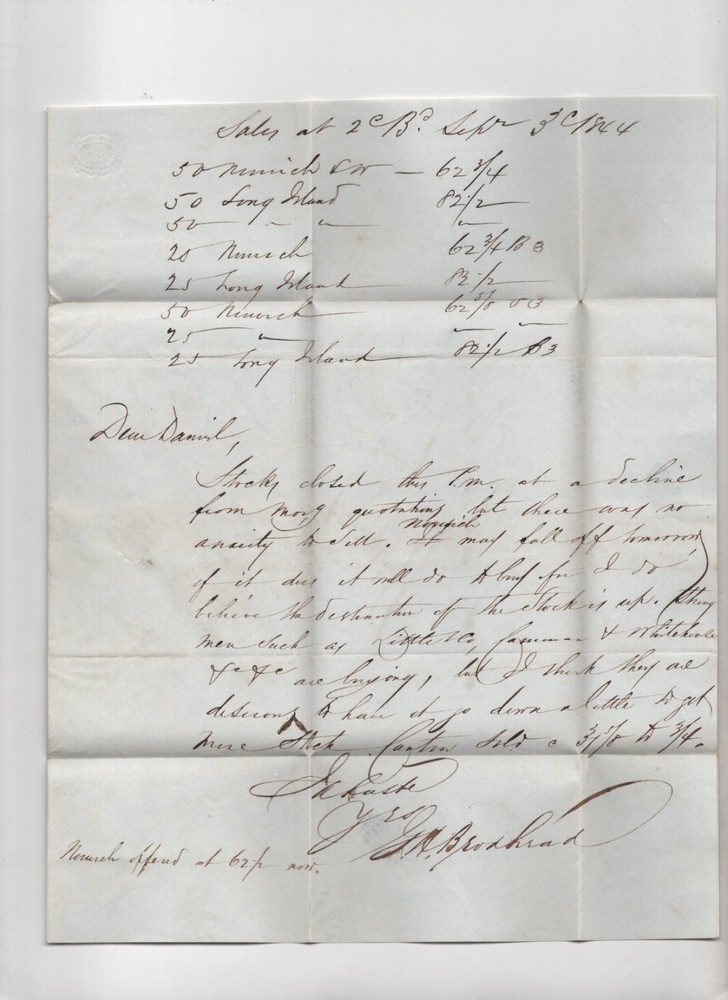 Sales at 2d Bd. Septr 3d 1844
50 Norwich — 62 3/4
50 Long Island 82 1/2
50 " " "
25 Norwich 62 3/4 B 3
25 Long Island 82 1/2
50 Norwich 62 5/8 B3
25 " " "
25 Long Island 82 1/2 B3
Dear Daniel,
Stocks closed this P.m. at a decline
from morg quotations but there was no
anxiety to Sell. Norwich may fall off tomorrow,
if it does it will do to buy for I do
believe the destination of the Stock is up. Strong
men such as Little & Co, & Whitehouse
&c &c are buying, but I think they are
desirous to have it go down a little to get
more Stock. Canton Sold @ 3/4.
In haste
Yrs
J.H. Brodhead
Norwich offered at 62 1/2 now.